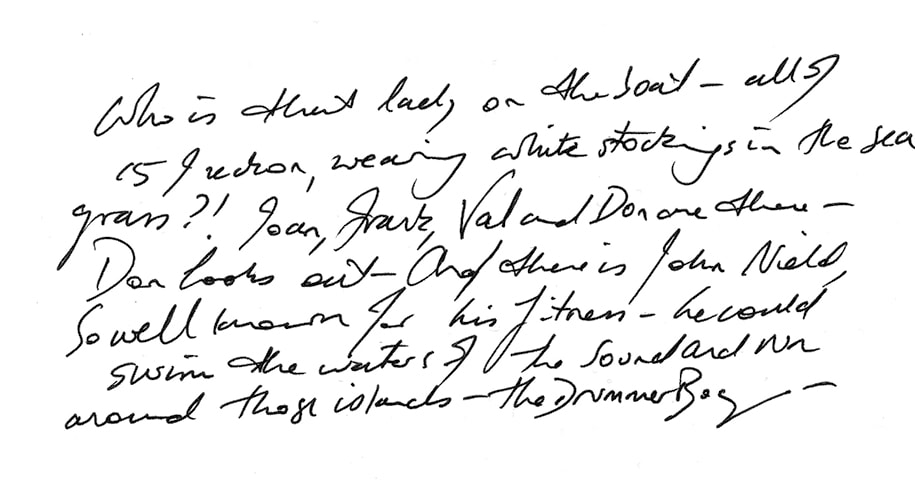 Who is that lady on the boat – all of
15 I reckon, wearing white stockings in the sea
grass?! Joan, Frank, Val and Don are there –
Don looks out – And there is John Nield,
So well known for his fitness – he could
swim the waters of the Sound and run
around those islands – the Drummer Boy –